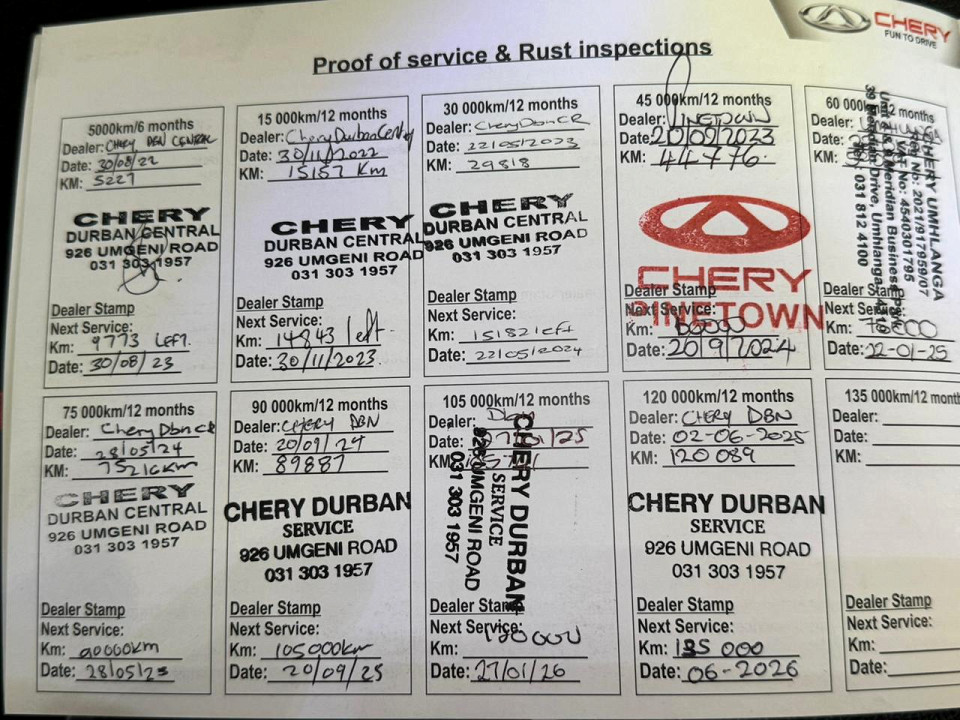 CHERY
FUN TO DRIVE
Proof of service & Rust inspections
5000km/6 months
Dealer: CHERY DBN CENTRAL
Date: 30/08/22
KM: 5227
CHERY
DURBAN CENTRAL
926 UMGENI ROAD
031 303 1957
Dealer Stamp
Next Service:
Km: 9773 LEFT.
Date: 30/08/23
15 000km/12 months
Dealer: Chery Durban Central
Date: 30/11/2022
KM: 15157 Km
CHERY
DURBAN CENTRAL
926 UMGENI ROAD
031 303 1957
Dealer Stamp
Next Service:
Km: 14843 left.
Date: 30/11/2023
30 000km/12 months
Dealer: Chery Dbn CR
Date: 22/05/2023
KM: 29818
CHERY
DURBAN CENTRAL
926 UMGENI ROAD
031 303 1957
Dealer Stamp
Next Service:
Km: 15182 left
Date: 22/05/2024
45 000km/12 months
Dealer: PINETOWN
Date: 20/09/2023
KM: 44776
CHERY
PINETOWN
Dealer Stamp
Next Service:
Km: 60000
Date: 20/9/2024
60 000km/12 months
Dealer:
Date:
KM:
CHERY UMHLANGA
Reg No: 2021/917959/07
VAT No: 4540301795
Meridian Business Park
Meridian Drive, Umhlanga
031 812 4100
Dealer Stamp
Next Service:
Km:
Date: 22-01-25
75 000km/12 months
Dealer: Chery Dbn CR
Date: 28/05/24
KM: 75216km
CHERY
DURBAN CENTRAL
926 UMGENI ROAD
031 303 1957
Dealer Stamp
Next Service:
Km: 90000km
Date: 28/05/25
90 000km/12 months
Dealer: CHERY DBN
Date: 20/09/24
KM: 89887
CHERY DURBAN
SERVICE
926 UMGENI ROAD
031 303 1957
Dealer Stamp
Next Service:
Km: 105000km
Date: 20/09/25
105 000km/12 months
Dealer: Dbn
Date:
KM:
CHERY DURBAN
SERVICE
926 UMGENI ROAD
031 303 1957
Dealer Stamp
Next Service:
120000
Km:
Date: 27/01/26
120 000km/12 months
Dealer: CHERY DBN
Date: 02-06-2025
KM: 120089
CHERY DURBAN
SERVICE
926 UMGENI ROAD
031 303 1957
Dealer Stamp
Next Service:
Km: 135 000
Date: 06-2026
135 000km/12 months
Dealer:
Date:
KM:
Dealer Stamp
Next Service:
Km:
Date: